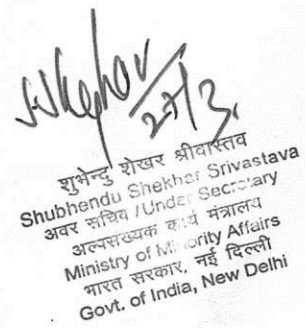 S.Skephar
27/3.
शुभेन्दु शेखर श्रीवास्तव
Shubhendu Shekhar Srivastava
अवर सचिव / Under Secretary
अल्पसंख्यक कार्य मंत्रालय
Ministry of Minority Affairs
भारत सरकार, नई दिल्ली
Govt. of India, New Delhi